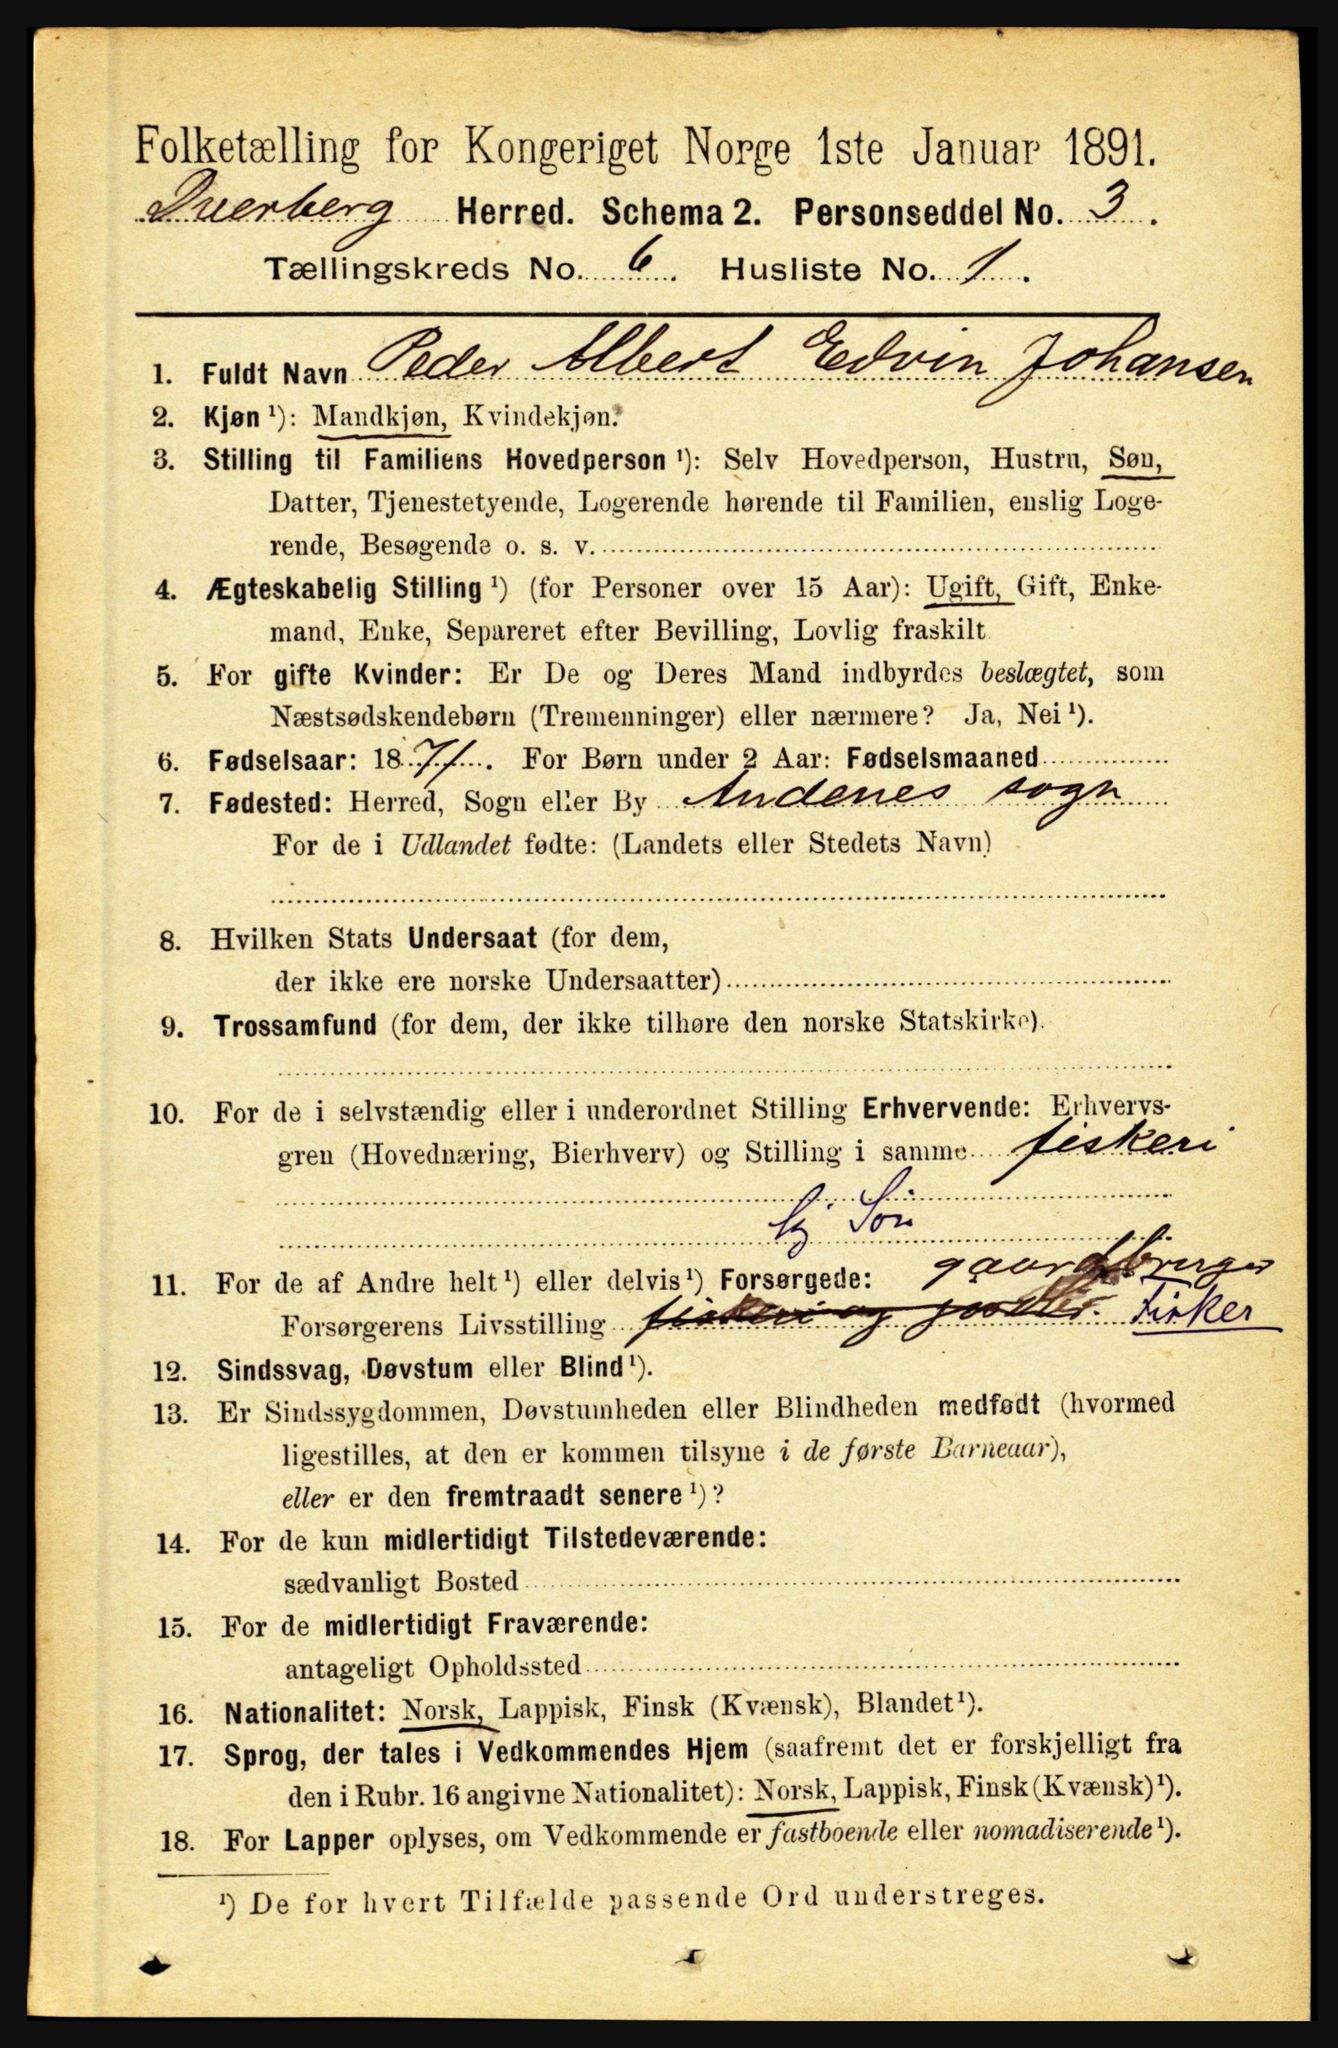 Folketælling for Kongeriget Norge 1ste Januar 1891.
Dverberg Herred. Schema 2. Personseddel No. 3.
Tællingskreds No. 6. Husliste No. 1.
1. Fuldt Navn Peder Albert Edvin Johansen
2. Kjøn ¹): Mandkjøn, Kvindekjøn.
3. Stilling til Familiens Hovedperson ¹): Selv Hovedperson, Hustru, Søn,
Datter, Tjenestetyende, Logerende hørende til Familien, enslig Loge-
rende, Besøgende o. s. v.
4. Ægteskabelig Stilling ¹) (for Personer over 15 Aar): Ugift, Gift, Enke-
mand, Enke, Separeret efter Bevilling, Lovlig fraskilt
5. For gifte Kvinder: Er De og Deres Mand indbyrdes beslægtet, som
Næstsødskendebørn (Tremenninger) eller nærmere? Ja, Nei ¹).
6. Fødselsaar: 1871. For Børn under 2 Aar: Fødselsmaaned
7. Fødested: Herred, Sogn eller By Andenes sogn
For de i Udlandet fødte: (Landets eller Stedets Navn)
8. Hvilken Stats Undersaat (for dem,
der ikke ere norske Undersaatter)
9. Trossamfund (for dem, der ikke tilhøre den norske Statskirke).
10. For de i selvstændig eller i underordnet Stilling Erhvervende: Erhvervs-
gren (Hovednæring, Bierhverv) og Stilling i samme fiskeri
Søn
11. For de af Andre helt ¹) eller delvis ¹) Forsørgede: gaardbruger
Forsørgerens Livsstilling fiskeri og Fisker
12. Sindssvag, Døvstum eller Blind ¹).
13. Er Sindssygdommen, Døvstumheden eller Blindheden medfødt (hvormed
ligestilles, at den er kommen tilsyne i de første Barneaar),
eller er den fremtraadt senere ¹)?
14. For de kun midlertidigt Tilstedeværende:
sædvanligt Bosted
15. For de midlertidigt Fraværende:
antageligt Opholdssted
16. Nationalitet: Norsk, Lappisk, Finsk (Kvænsk), Blandet ¹).
17. Sprog, der tales i Vedkommendes Hjem (saafremt det er forskjelligt fra
den i Rubr. 16 angivne Nationalitet): Norsk, Lappisk, Finsk (Kvænsk) ¹).
18. For Lapper oplyses, om Vedkommende er fastboende eller nomadiserende ¹).
¹) De for hvert Tilfælde passende Ord understreges.